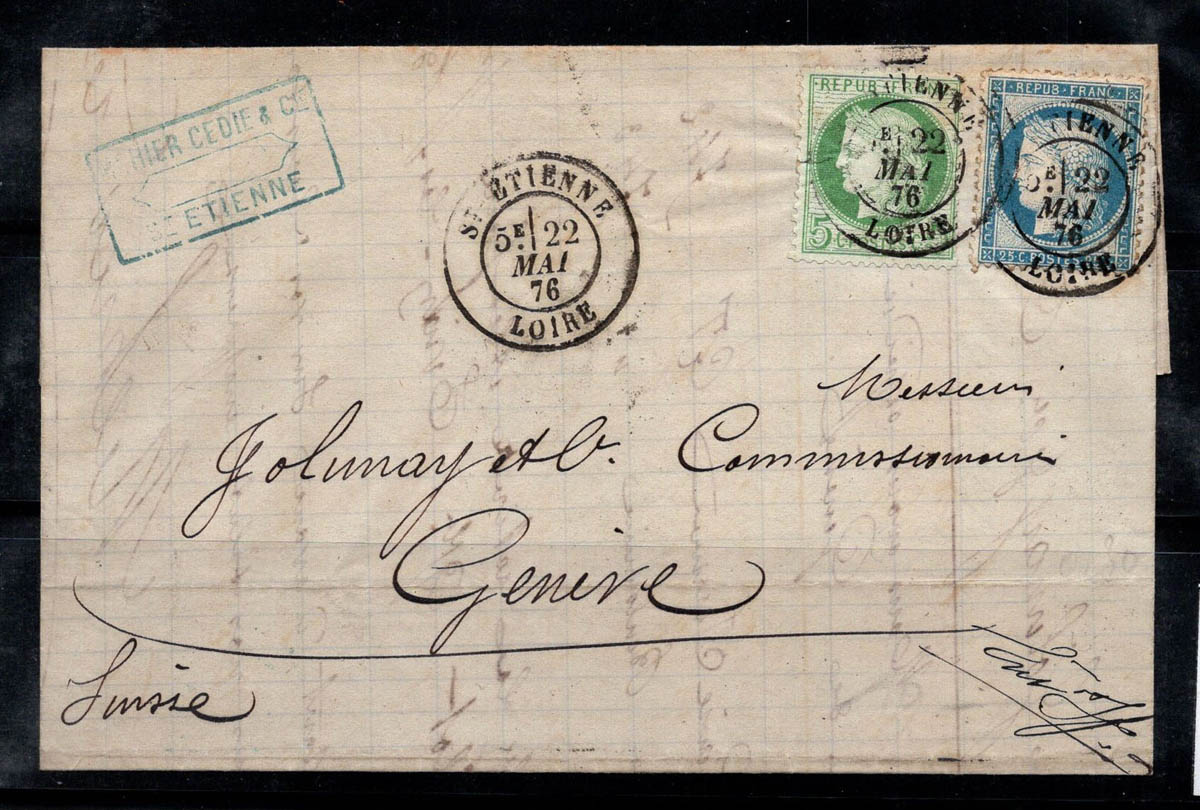 HIER CEDIE & Cie
St ETIENNE
St ETIENNE
5E 22
MAI
76
LOIRE
REPUB FRANC
5 C
TIENNE
E 22
MAI
76
LOIRE
REPUB·FRANC
25·C·POSTE
TIENNE
5E 22
MAI
76
LOIRE
Messieurs
Commissionnaires
Genève
Suisse